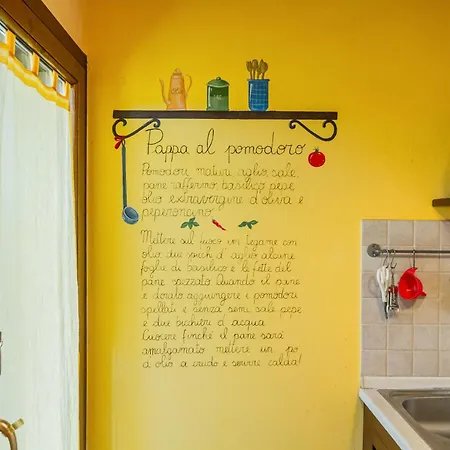 Pappa al pomodoro
Pomodori maturi, aglio, sale,
pane raffermo, basilico, pepe
olio extravergine d'oliva e
peperoncino.
Mettere sul fuoco un tegame con
olio due spicchi d'aglio alcune
foglie di basilico e le fette del
pane spezzato. Quando il pane
è dorato aggiungere i pomodori
spellati e senza semi, sale pepe
e due bicchieri d'acqua.
Cuocere finché il pane sarà
amalgamato mettere un po'
d'olio a crudo e servire calda!